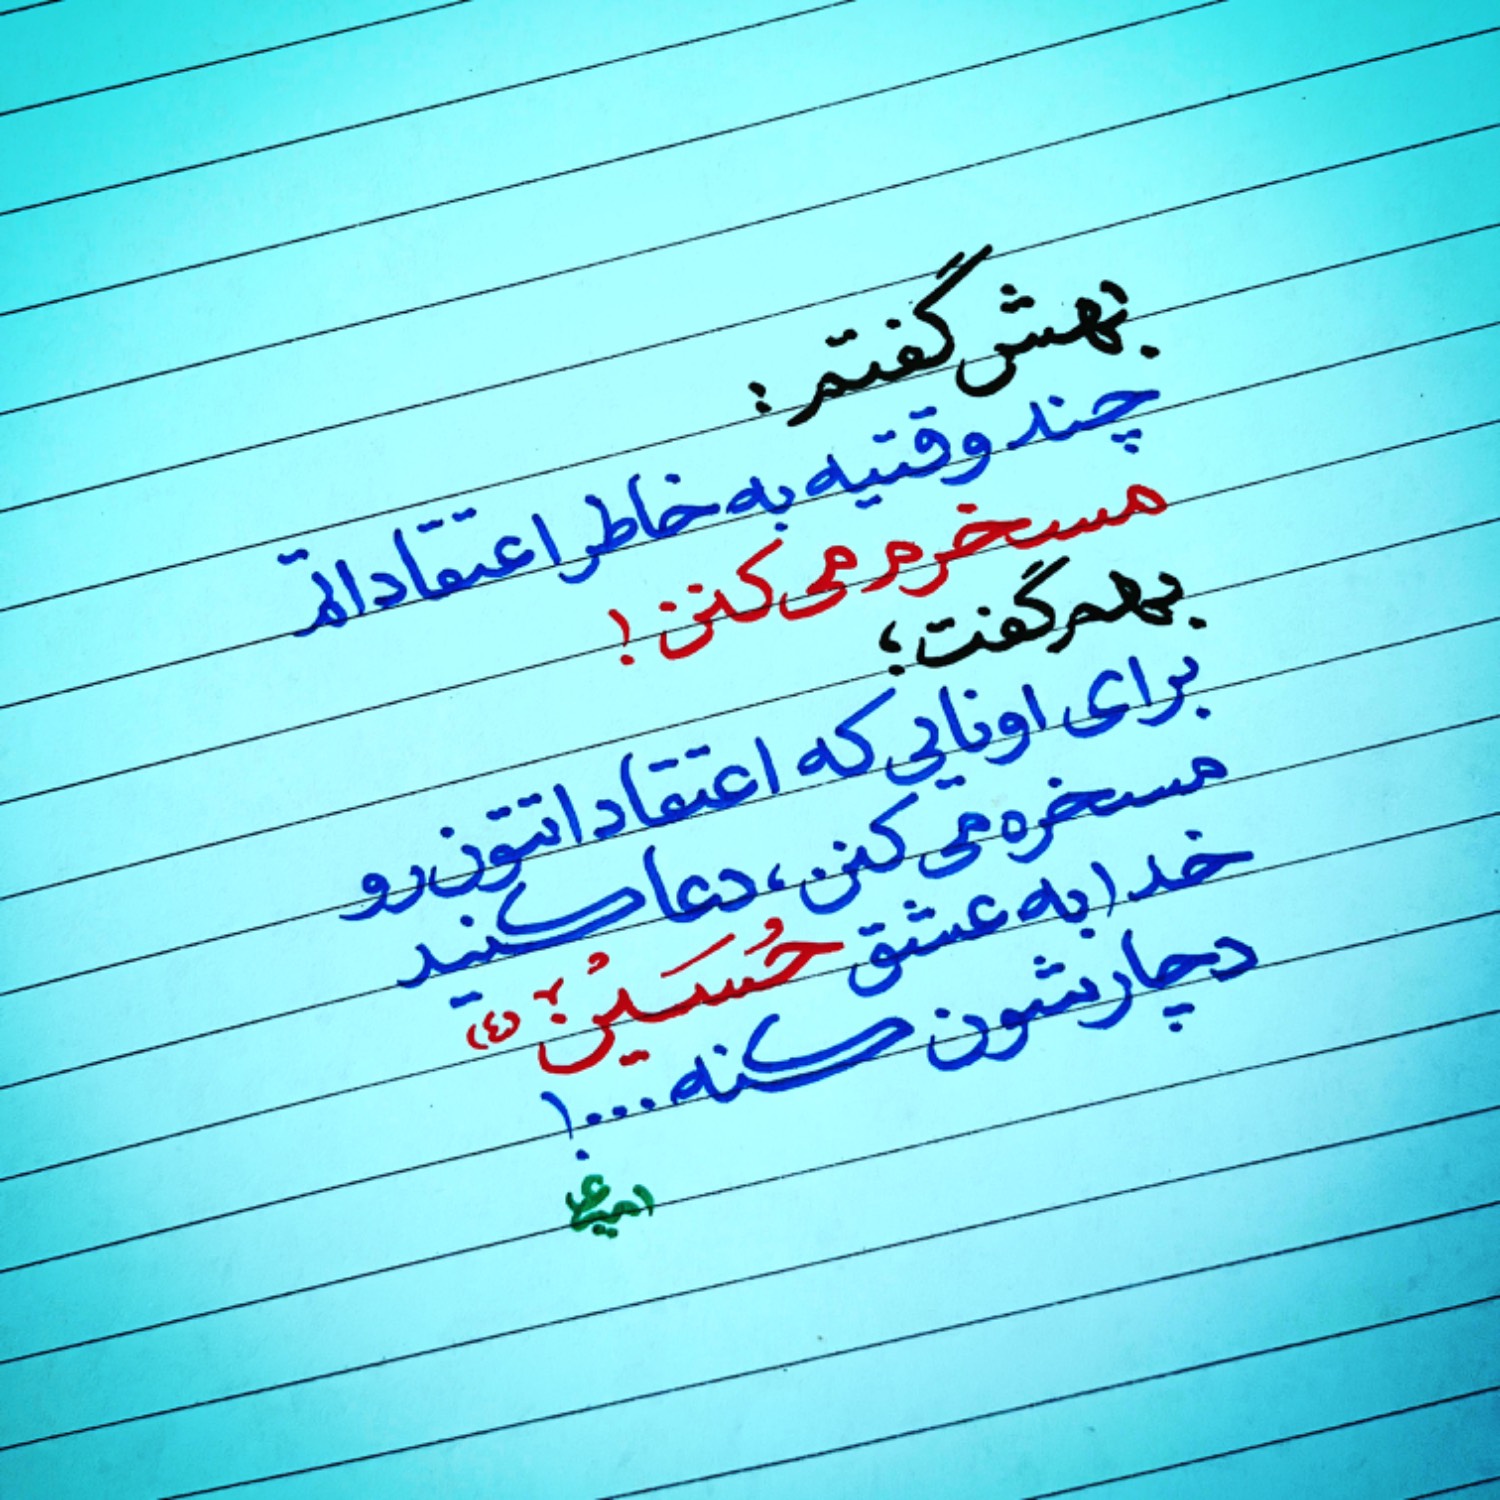 بهش گفتم :
چند وقتیه به خاطر اعتقاداتم
مسخرم می کنن !
بهم گفت ؛
برای اونایی که اعتقاداتتون رو
مسخره می کنن ، دعا کنید
خدا به عشق حُسَیْنْ (ع)
دچارشون کنه ... !